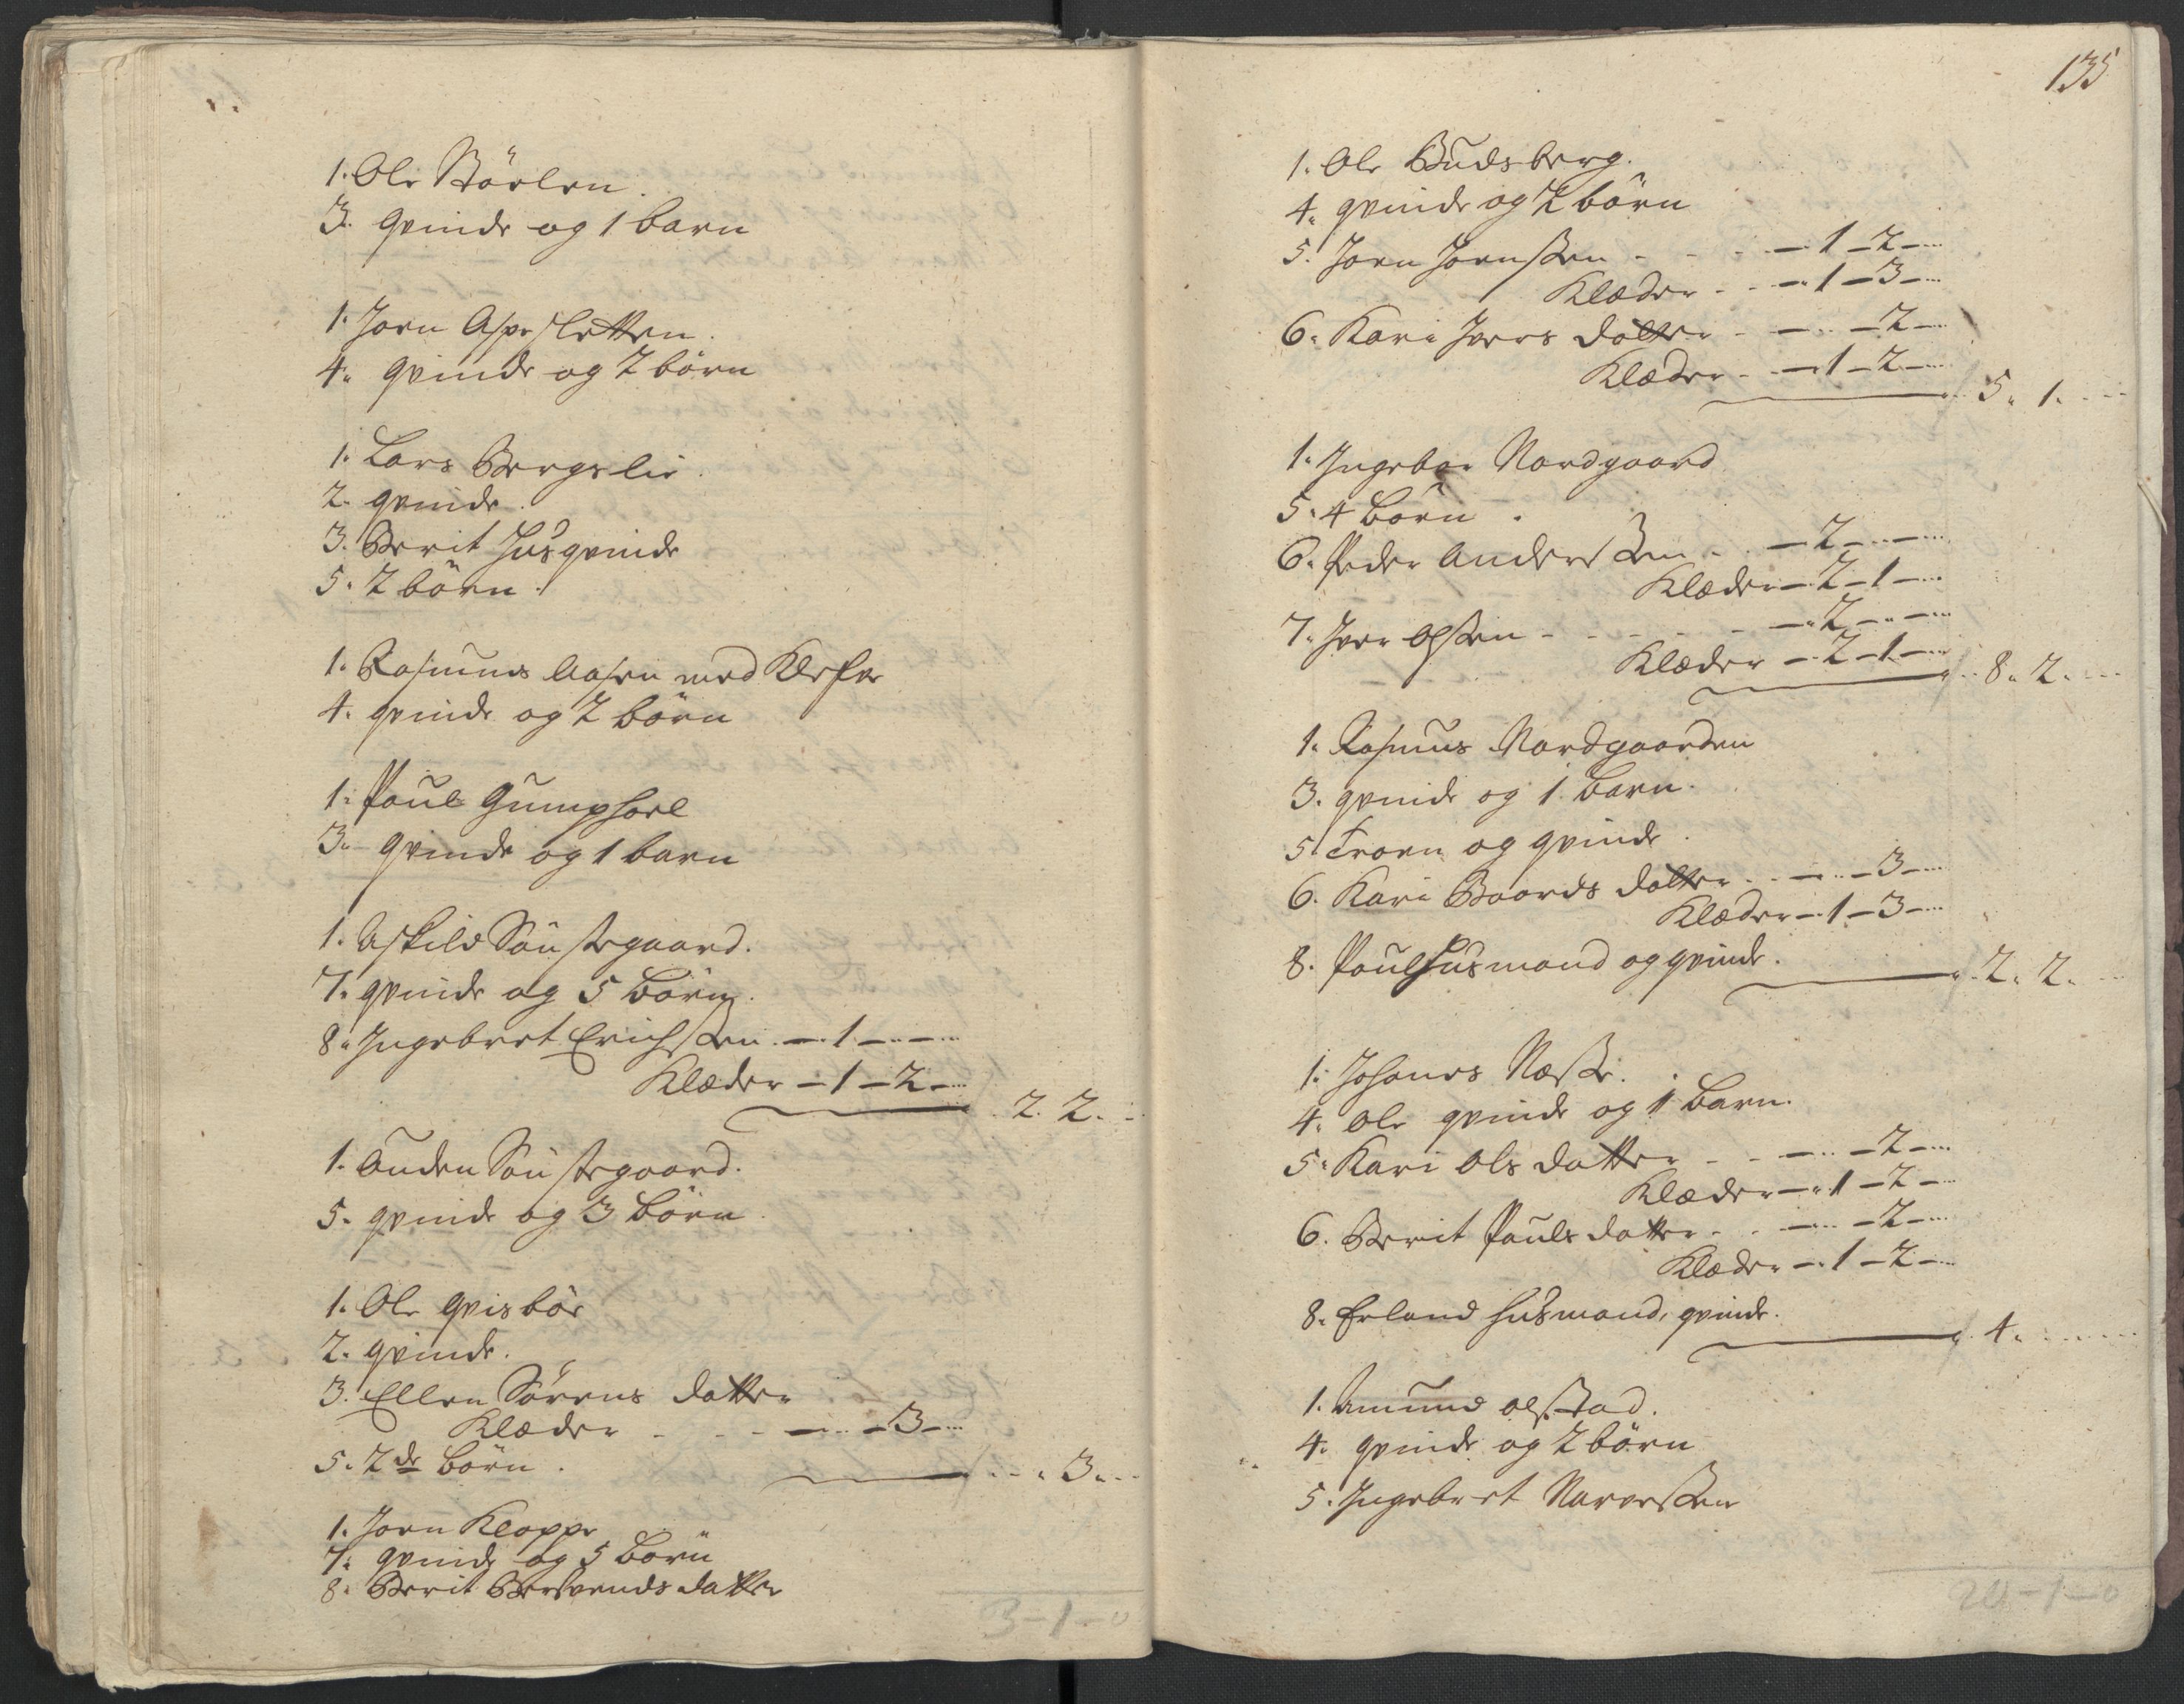 1. Ole Störlen.
3. qvinde og 1 barn
1. Joen Aspesletten.
4. qvinde og 2 börn
1. Lars Bergslie.
2. qvinde.
3. Berit Husqvinde
5. 2 börn.
1. Rasmus Aasen med
4. qvinde og 2 börn
1. Poul Gumphoel
3. qvinde og 1 barn
1. Askild Söustegaard.
7. qvinde og 5 Börn.
8. Ingebret Erichssen. — 1 — —
Klæder — 1 — 2 —
2. 2.
1. Auden Söustegaard.
5. qvinde og 3 Börn.
1. Ole Qvisböe
2. qvinde.
3. Ellen Sörens datter
Klæder - - - — — 3 —
5. 2de Börn.
3.
1. Joen Kloppe
7. qvinde og 5 Börn
8. Berit Bersvends datter
3-1-0
135
1. Ole Budsberg.
4. qvinde og 2 börn
5. Joen Joenssen - - - — 1 — 2 —
Klæder - - — 1 — 3 —
6. Kari Ivers datter - — — 2 —
Klæder - — 1 — 2 —
5. 1.
1. Ingebor Nordgaard
5. 4 Börn.
6. Peder Anderssen - - — 2 — —
Klæder — 2 — 1 —
7. Iver Olssen - - - - — 2 — —
Klæder — 2 — 1 —
8. 2.
1. Rasmus Nordgaarden
3. qvinde og 1 Barn.
5. Troen og qvinde.
6. Kari Baards datter - - — — 3 —
Klæder — 1 — 3 —
8. Poul Husmand og qvinde.
2. 2.
1. Johanes Næsse.
4. Ole qvinde og 1 Barn.
5. Kari Ols datter - - — — 2 —
Klæder — 1 — 2 —
6. Berit Pouls datter - - — — 2 —
Klæder — 1 — 2 —
8. Erland Husmand, qvinde.
4.
1. Amund Olstad.
4. qvinde og 2 börn
5. Ingebret Narvessen
20-1-0